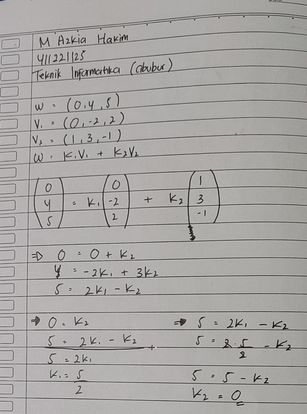 M Azkia Hakim
411221125
Teknik Informatika (Cibubur)
W = (0,4,5)
V₁ = (0,-2,2)
V₂ = (1,3,-1)
W = K₁V₁ + K₂V₂
(0 4 5) = K₁ (0 -2 2) + K₂ (1 3 -1)
⇒ 0 = 0 + K₂
4 = -2K₁ + 3K₂
5 = 2K₁ - K₂
→ 0 = K₂
5 = 2K₁ - K₂ +
5 = 2K₁
K₁ = 5/2
→ 5 = 2K₁ - K₂
5 = 2·5/2 - K₂
5 = 5 - K₂
K₂ = 0